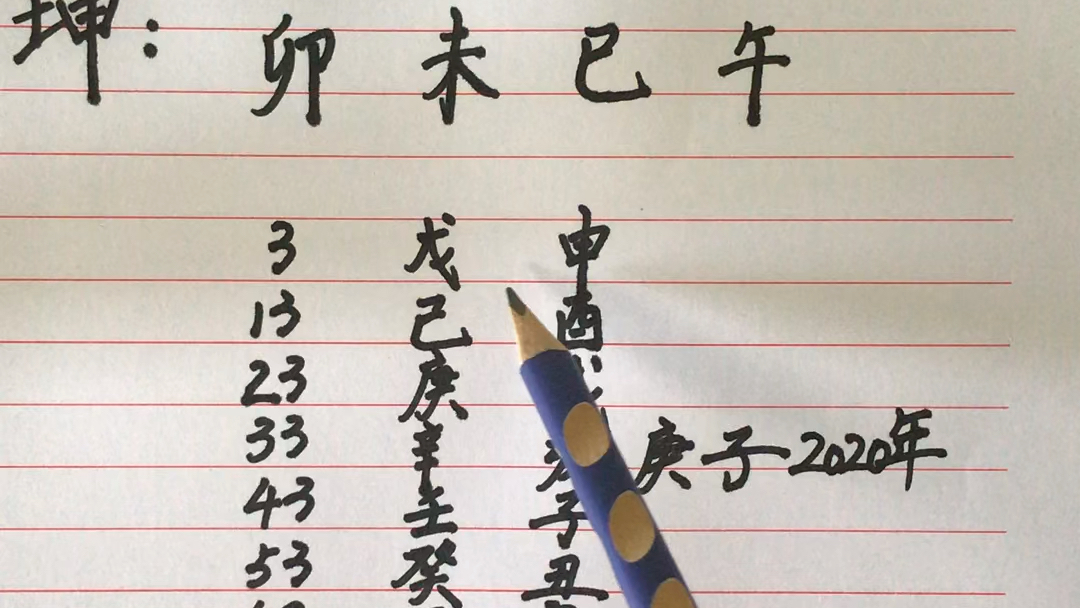 坤： 卯 未 巳 午
3 戊 申
13 己 酉
23 庚
33 辛 庚子2020年
43 壬 子
53 癸 丑